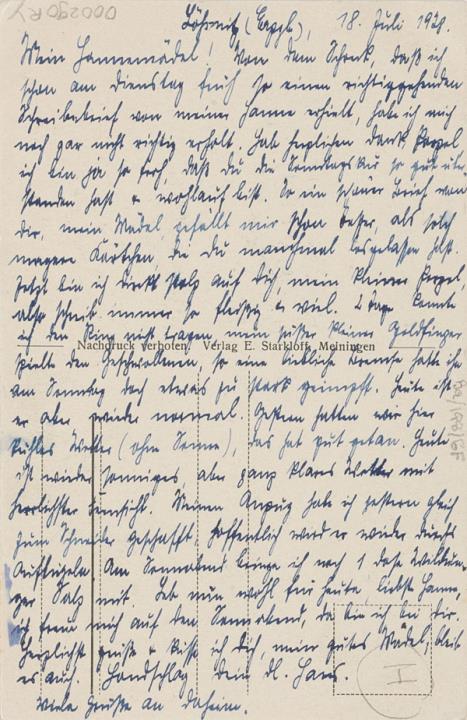 000290RY
Lößnitz (Erzgb), 18. Juli 1929.
Mein Hannemädel! Von dem Schreck, daß ich
schon am Dienstag früh so einen richtiggehenden
Schreibebrief von meiner Hanne erhielt, habe ich mich
noch gar nicht richtig erholt. Hab herzlichen Dank,
ich bin ja so froh, daß du die Sonntagskur so gut über-
standen hast & wohlauf bist. So ein schöner Brief von
dir, mein Mädel gefällt mir schon besser, als solch
magere Kärtchen, die du manchmal losgelassen hast.
Jetzt bin ich direkt stolz auf dich, mein kleiner
also schreib immer so fleißig & viel. 2 Tage konnte
ich den Ring nicht tragen, mein süßer kleiner Goldfinger
Nachdruck verboten. Verlag E. Starkloff, Meiningen
spielte den Geschwollenen, so eine liebliche Bremse hatte ihn
am Sonntag doch etwas zu stark geimpft. Heute ist
er aber wieder normal. Gestern hatten wir hier
kühles Wetter (ohne Sonne), das hat gut getan. Heute
ist wieder sonniges, aber ganz klares Wetter mit
herrlichster Fernsicht. Meinen Anzug habe ich gestern gleich
zum Schneider geschafft. Hoffentlich wird er wieder
Aufbügeln. Am Sonnabend bringe ich noch 1 Dose Wildun-
ger Salz mit. Leb nun wohl für heute, liebste Hanne,
ich freue mich auf den Sonnabend, da bin ich bei dir.
Herzlichst grüße & küsse ich dich, mein gutes Mädel, bleib
es auch. Handschlag dein dl. Hans.
Viele Grüße an daheim.
I